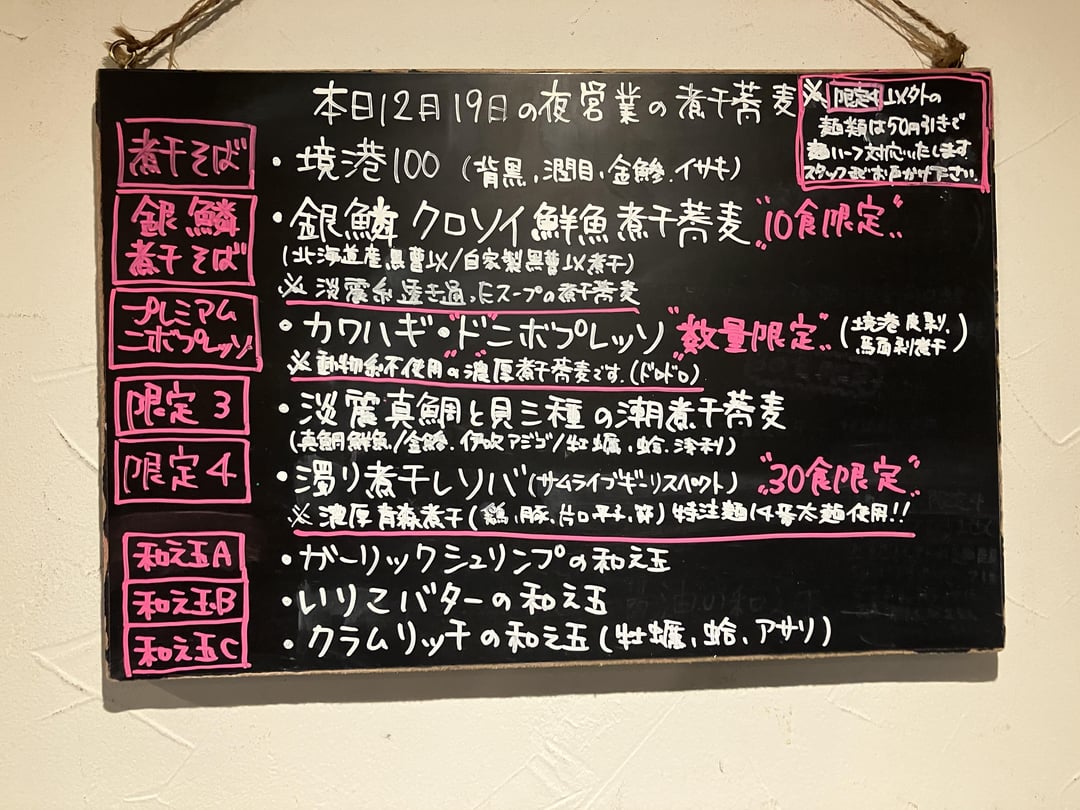 本日12月19日の夜営業の煮干蕎麦
※限定4以外の
麺類は50円引きで
麺ハーフ対応いたします
スタッフまでお声がけ下さい
煮干そば
・境港100（背黒、潤目、金鯵、イサキ）
銀鱗
煮干そば
・銀鱗 クロソイ鮮魚煮干蕎麦 "10食限定"
（北海道産黒曹以/自家製黒曹以煮干）
※淡麗系透き通ったスープの煮干蕎麦
プレミアム
ニボプレッソ
・カワハギ・"ド"ニボプレッソ "数量限定"
（境港皮剥、
馬面剥煮干）
※動物系不使用の"濃"厚煮干蕎麦です。（ドロドロ）
限定3
・淡麗真鯛と貝三種の潮煮干蕎麦
（真鯛鮮魚/金鯵、伊吹アジゴ/牡蠣、蛤、浅利）
限定4
・濁り煮干しソバ（サムライブギーリスペクト） "30食限定"
※濃厚青森煮干（鶏、豚、片口、平子、節）特注麺14番太麺使用!!
和え玉A
・ガーリックシュリンプの和え玉
和え玉B
・いりこバターの和え玉
和え玉C
・クラムリッチの和え玉（牡蠣、蛤、アサリ）